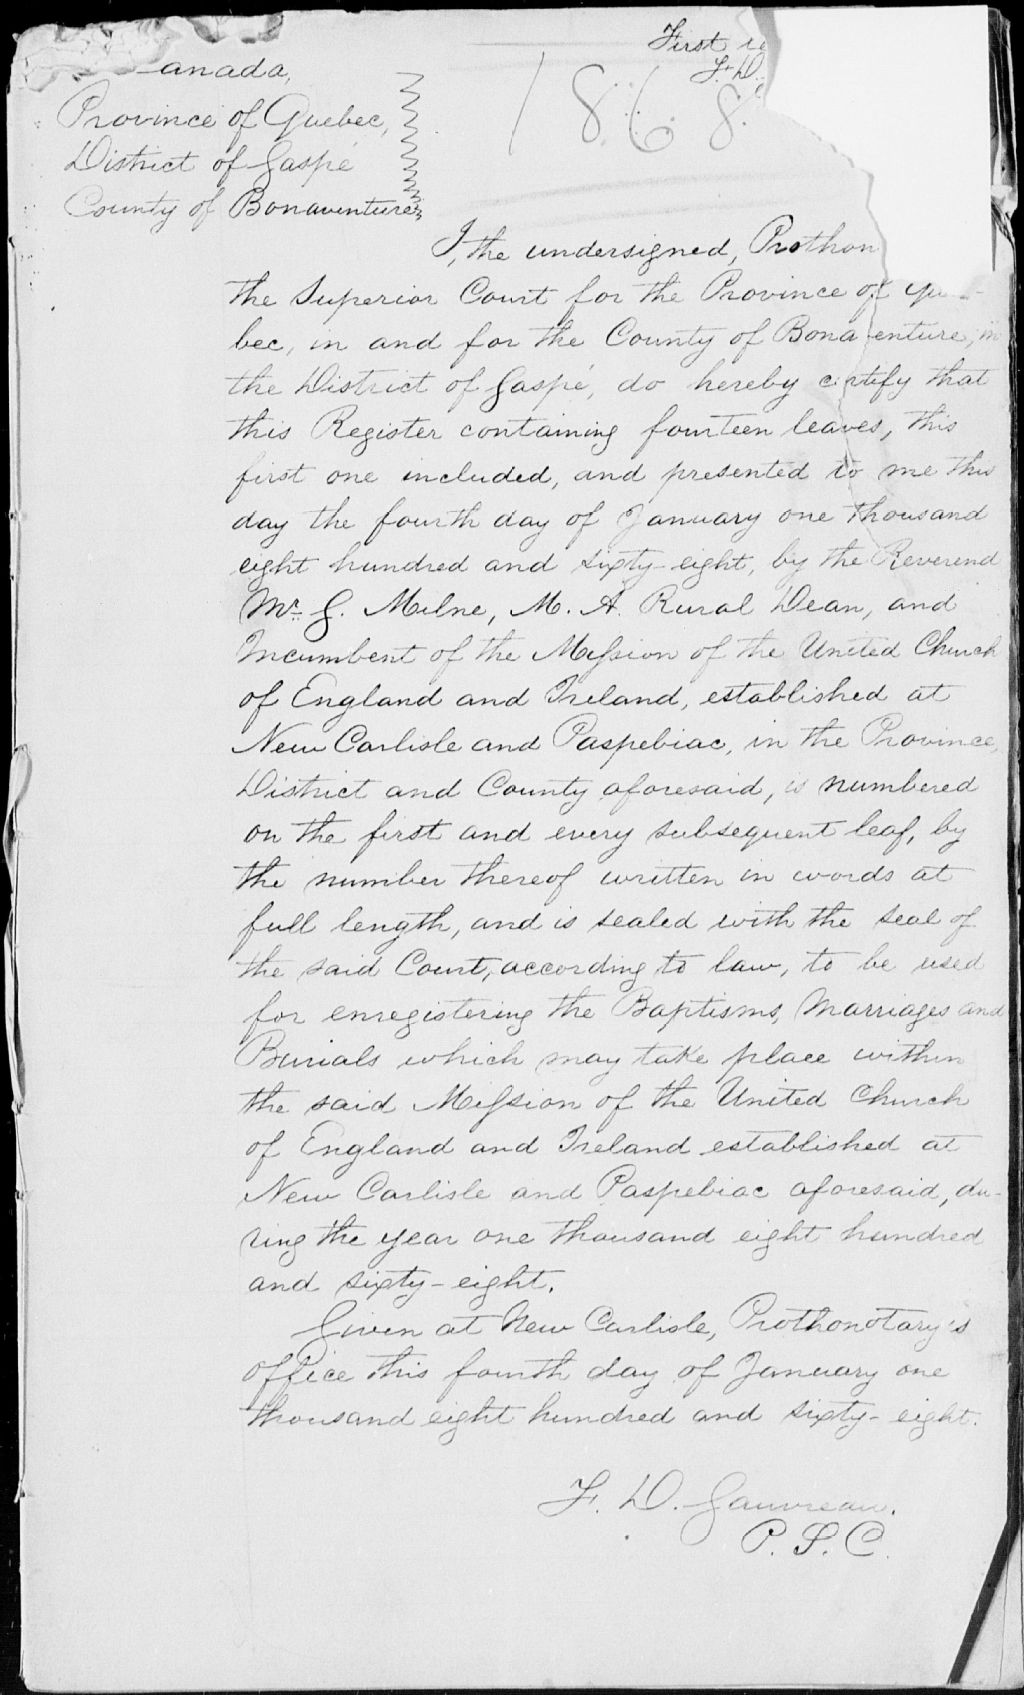 anada,
Province of Quebec,
District of Gaspé
County of Bonaventure
First
F. D.
1868
I, the undersigned, Prothon
the Superior Court for the Province of Que-
bec, in and for the County of Bonaventure, in
the District of Gaspé, do hereby certify that
this Register containing fourteen leaves, this
first one included, and presented to me this
day the fourth day of January one thousand
eight hundred and sixty-eight, by the Reverend
Mr. G. Milne, M. A. Rural Dean, and
Incumbent of the Mission of the United Church
of England and Ireland, established at
New Carlisle and Paspebiac, in the Province,
District and County aforesaid, is numbered
on the first and every subsequent leaf, by
the number thereof written in words at
full length, and is sealed with the seal of
the said Court, according to law, to be used
for enregistering the Baptisms, Marriages and
Burials which may take place within
the said Mission of the United Church
of England and Ireland established at
New Carlisle and Paspebiac aforesaid, du-
ring the year one thousand eight hundred
and sixty-eight.
Given at New Carlisle, Prothonotary's
office this fourth day of January one
thousand eight hundred and sixty-eight.
F. D. Gauvreau.
P. S. C.